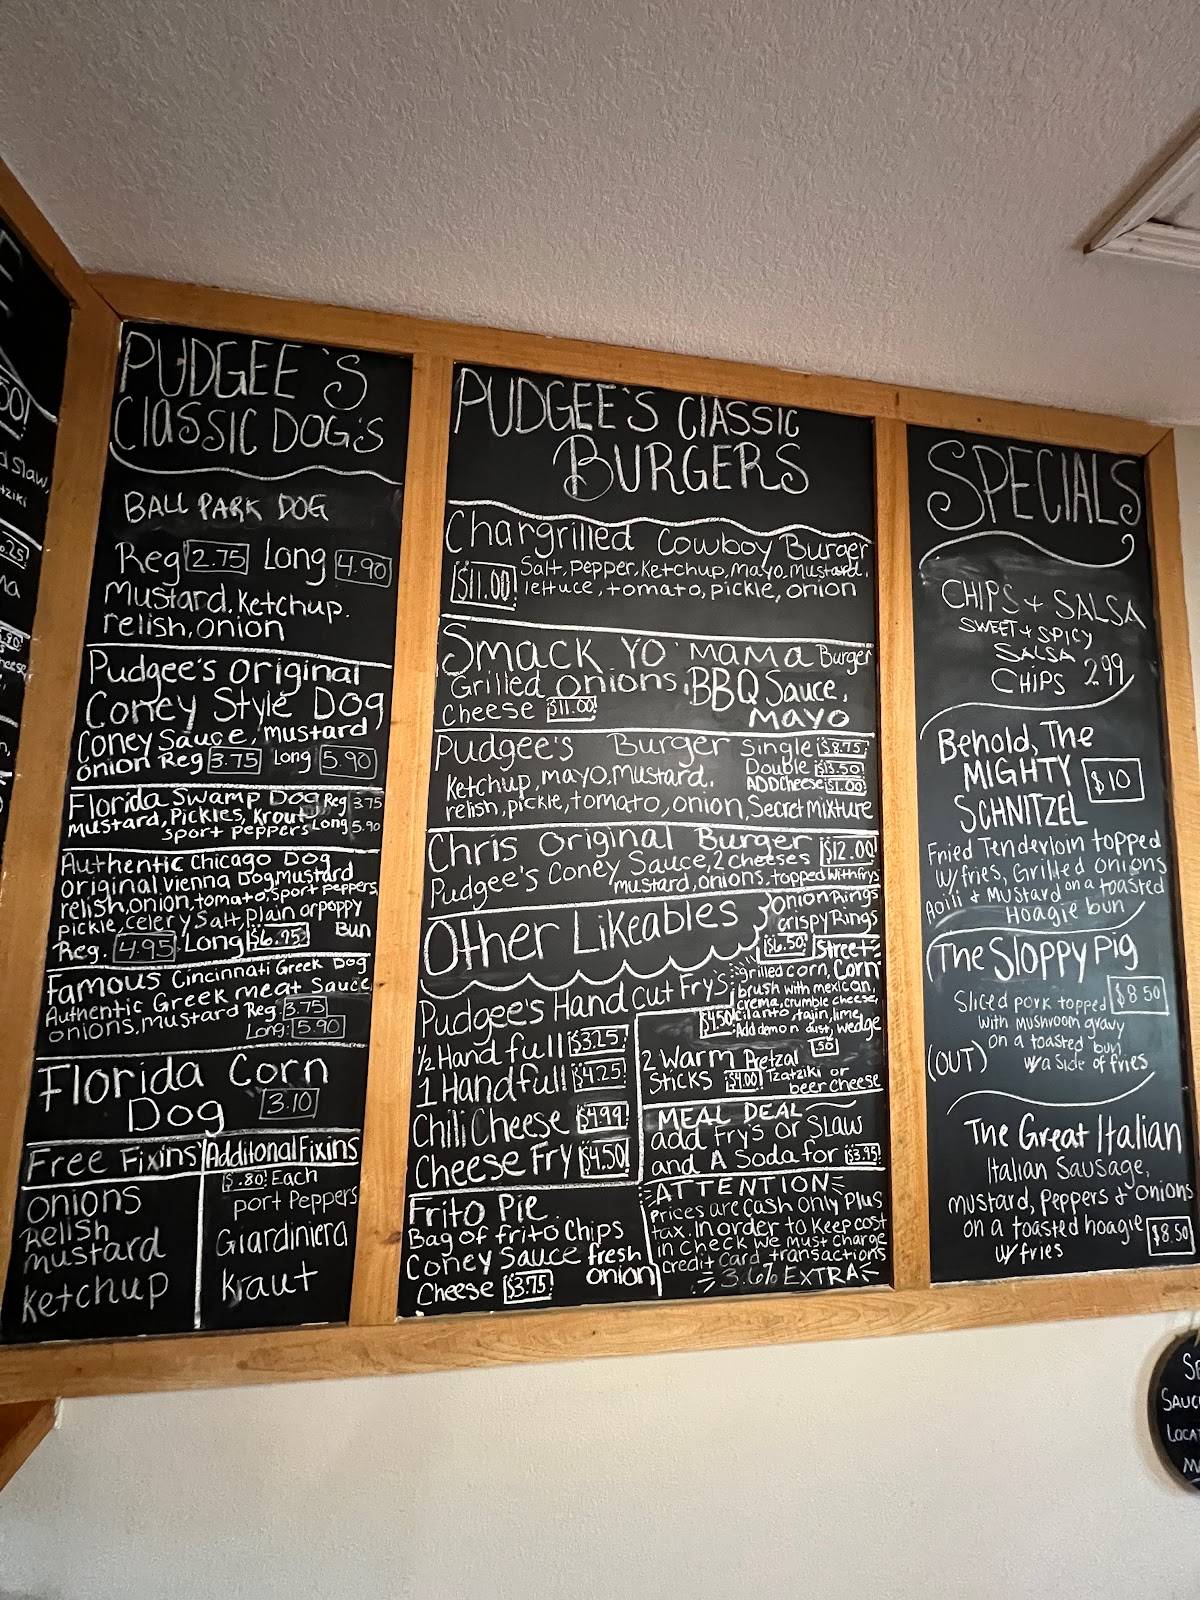 PUDGEE'S
CLASSIC DOG'S
BALL PARK DOG
Reg 2.75 Long 4.90
Mustard, Ketchup,
relish, onion
Pudgee's original
Coney Style Dog
Coney Sauce, mustard
onion Reg 3.75 Long 5.90
Florida Swamp Dog Reg 3.75
mustard, Pickles, Krout
sport peppers Long 5.90
Authentic Chicago Dog
original vienna Dog Mustard
relish, onion, tomato, sport peppers,
pickle, celery Salt, plain or poppy
Bun
Reg. 4.95 Long $6.95
Famous Cincinnati Greek Dog
Authentic Greek meat Sauce
onions, mustard Reg 3.75
Long: 5.90
Florida Corn
Dog 3.10
Free Fixins'
onions
Relish
mustard
Ketchup
Additonal Fixins
$.80! Each
port Peppers
Giardiniera
Kraut
PUDGEE'S CLASSIC
BURGERS
Chargrilled Cowboy Burger
$11.00! Salt, pepper, Ketchup, mayo, mustard,
lettuce, tomato, pickle, onion
Smack Yo' mama Burger
Grilled onions, BBQ Sauce,
Cheese $11.00! Mayo
Pudgee's Burger Single $8.75!
Double $13.50!
Ketchup, mayo, mustard, ADD Cheese $1.00!
relish, pickle, tomato, onion, Secret mixture
Chris Original Burger $12.00!
Pudgee's Coney Sauce, 2 cheeses
mustard, onions, topped with frys
Other Likeables
Onion Rings
Crispy Rings
$6.50!
Pudgee's Hand cut Frys
½ Hand full $3.25!
1 Handfull $4.25!
Chili Cheese $4.99!
Cheese Fry $4.50!
Frito Pie
Bag of frito Chips
Coney Sauce fresh
onion
Cheese $3.75!
Street
Corn
grilled corn,
brush with mexican,
crema, crumble cheese,
$4.50! cilanto, tajin, lime,
Add demon dust, wedge
.50
2 Warm Pretzal
Sticks $4.00! Tzatziki or
beer cheese
MEAL DEAL
add Fry's or SLAW
and A Soda for $3.95!
ATTENTION
Prices are Cash Only Plus
tax. In order to Keep cost
in check we must charge
credit card transactions
3.6% EXTRA
SPECIALS
CHIPS + SALSA
SWEET + SPICY
SALSA
CHIPS 2.99
Behold, The
MIGHTY $10
SCHNITZEL
Fried Tenderloin topped
w/ fries, Grilled onions
Aoili & Mustard on a toasted
Hoagie bun
The Sloppy Pig
Sliced pork topped $8.50
with mushroom gravy
on a toasted bun
(OUT) w/ a side of fries
The Great Italian
Italian Sausage,
mustard, peppers & onions
on a toasted hoagie $8.50
w/ fries